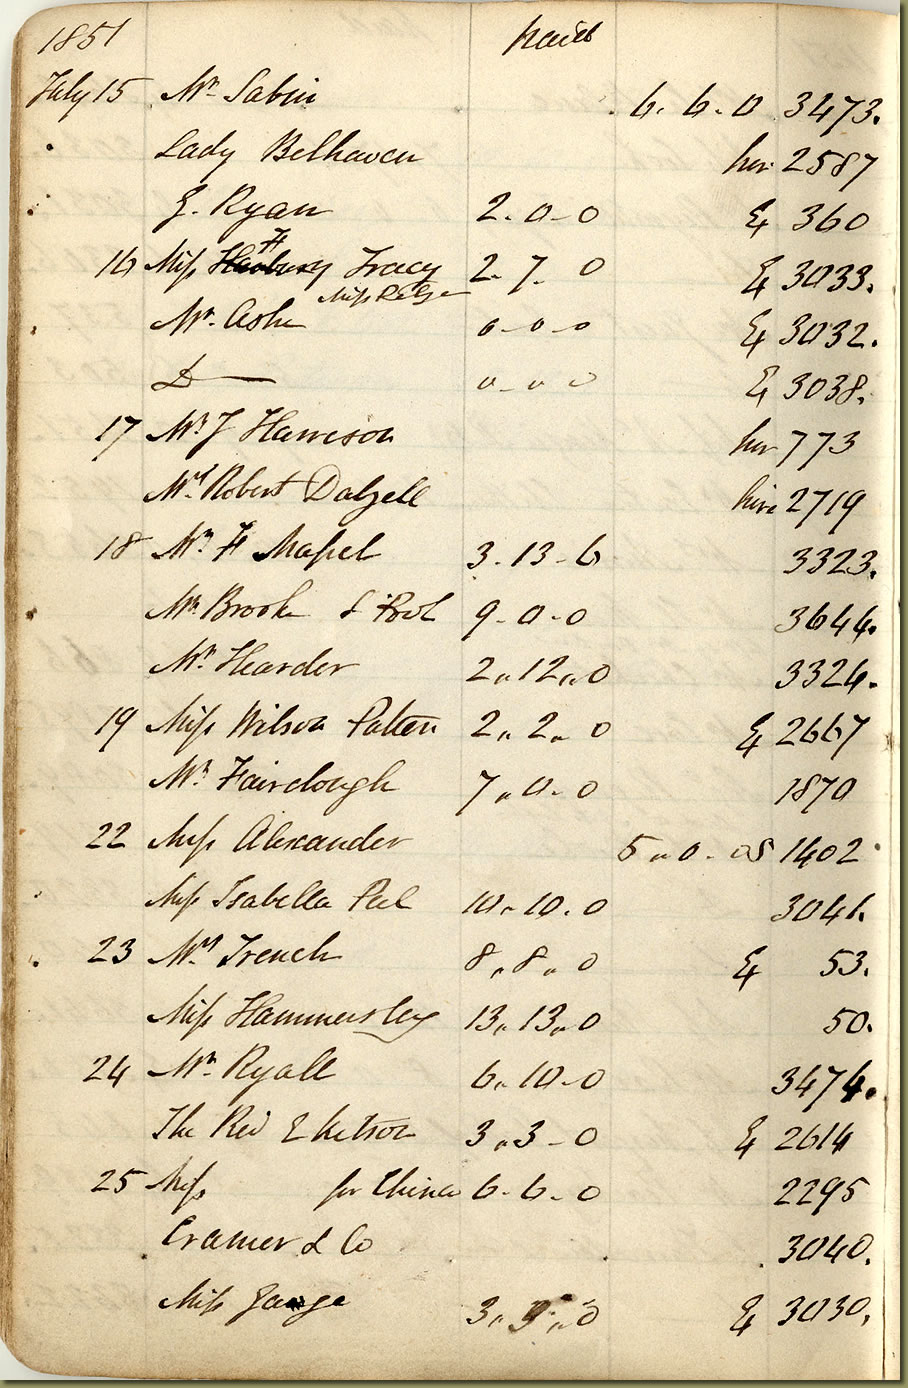 1851 paid
July 15 Mr. Sabin 6. 6. 0 3473.
Lady Belhaven hire 2587
G. Ryan 2. 0 - 0 Ex 360
16 Miss H Tracy 2. 7. 0 Ex 3033.
Mr. Ashe 0 - 0 - 0 Ex 3032.
D— 0 - 0 0 Ex 3038.
17 Mr. J Harrison hire 773
Mrs Robert Dalzell hire 2719
18 Mr. H Mapel 3. 13 - 6 3323.
Mr. Brook 9 - 0 - 0 3644.
Mr. Hearder 2 " 12 " 0 3324.
19 Miss Wilson Patten 2 " 2 " 0 Ex 2667
Mr. Fairclough 7 " 0 - 0 1870
22 Miss Alexander 5 " 0 - 0S 1402
Miss Isabella Peel 10 " 10. 0 3041.
23 Mrs Trench 8 " 8 " 0 Ex 53.
Miss Hammersley 13 " 13 " 0 50.
24 Mr. Ryall 6 " 10 - 0 3474.
The Revd E 3 " 3 - 0 Ex 2614
25 Miss for China 6 - 6 - 0 2295
Cramer & Co 3040.
Miss Gange 3 " 3 " 0 Ex 3030.